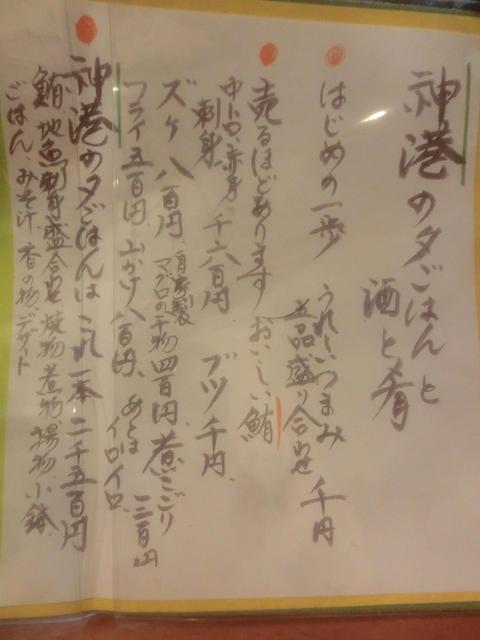 神港の夕ごはんと
酒と肴
はじめの一歩 うれしいつまみ
五品盛り合わせ 千円
売るほどあります おいしい鮪
中トロ、赤身
刺身 千六百円 ブツ千円
ズケ 八百円 自家製マグロの干物四百円、煮こごり三百円
フライ五百円、山かけ八百円、あとはイロイロ
神港の夕ごはんは これ一本 二千五百円
鮪、地魚刺身盛合わせ 焼物 煮物 揚物 小鉢
ごはん、みそ汁 香の物、デザート